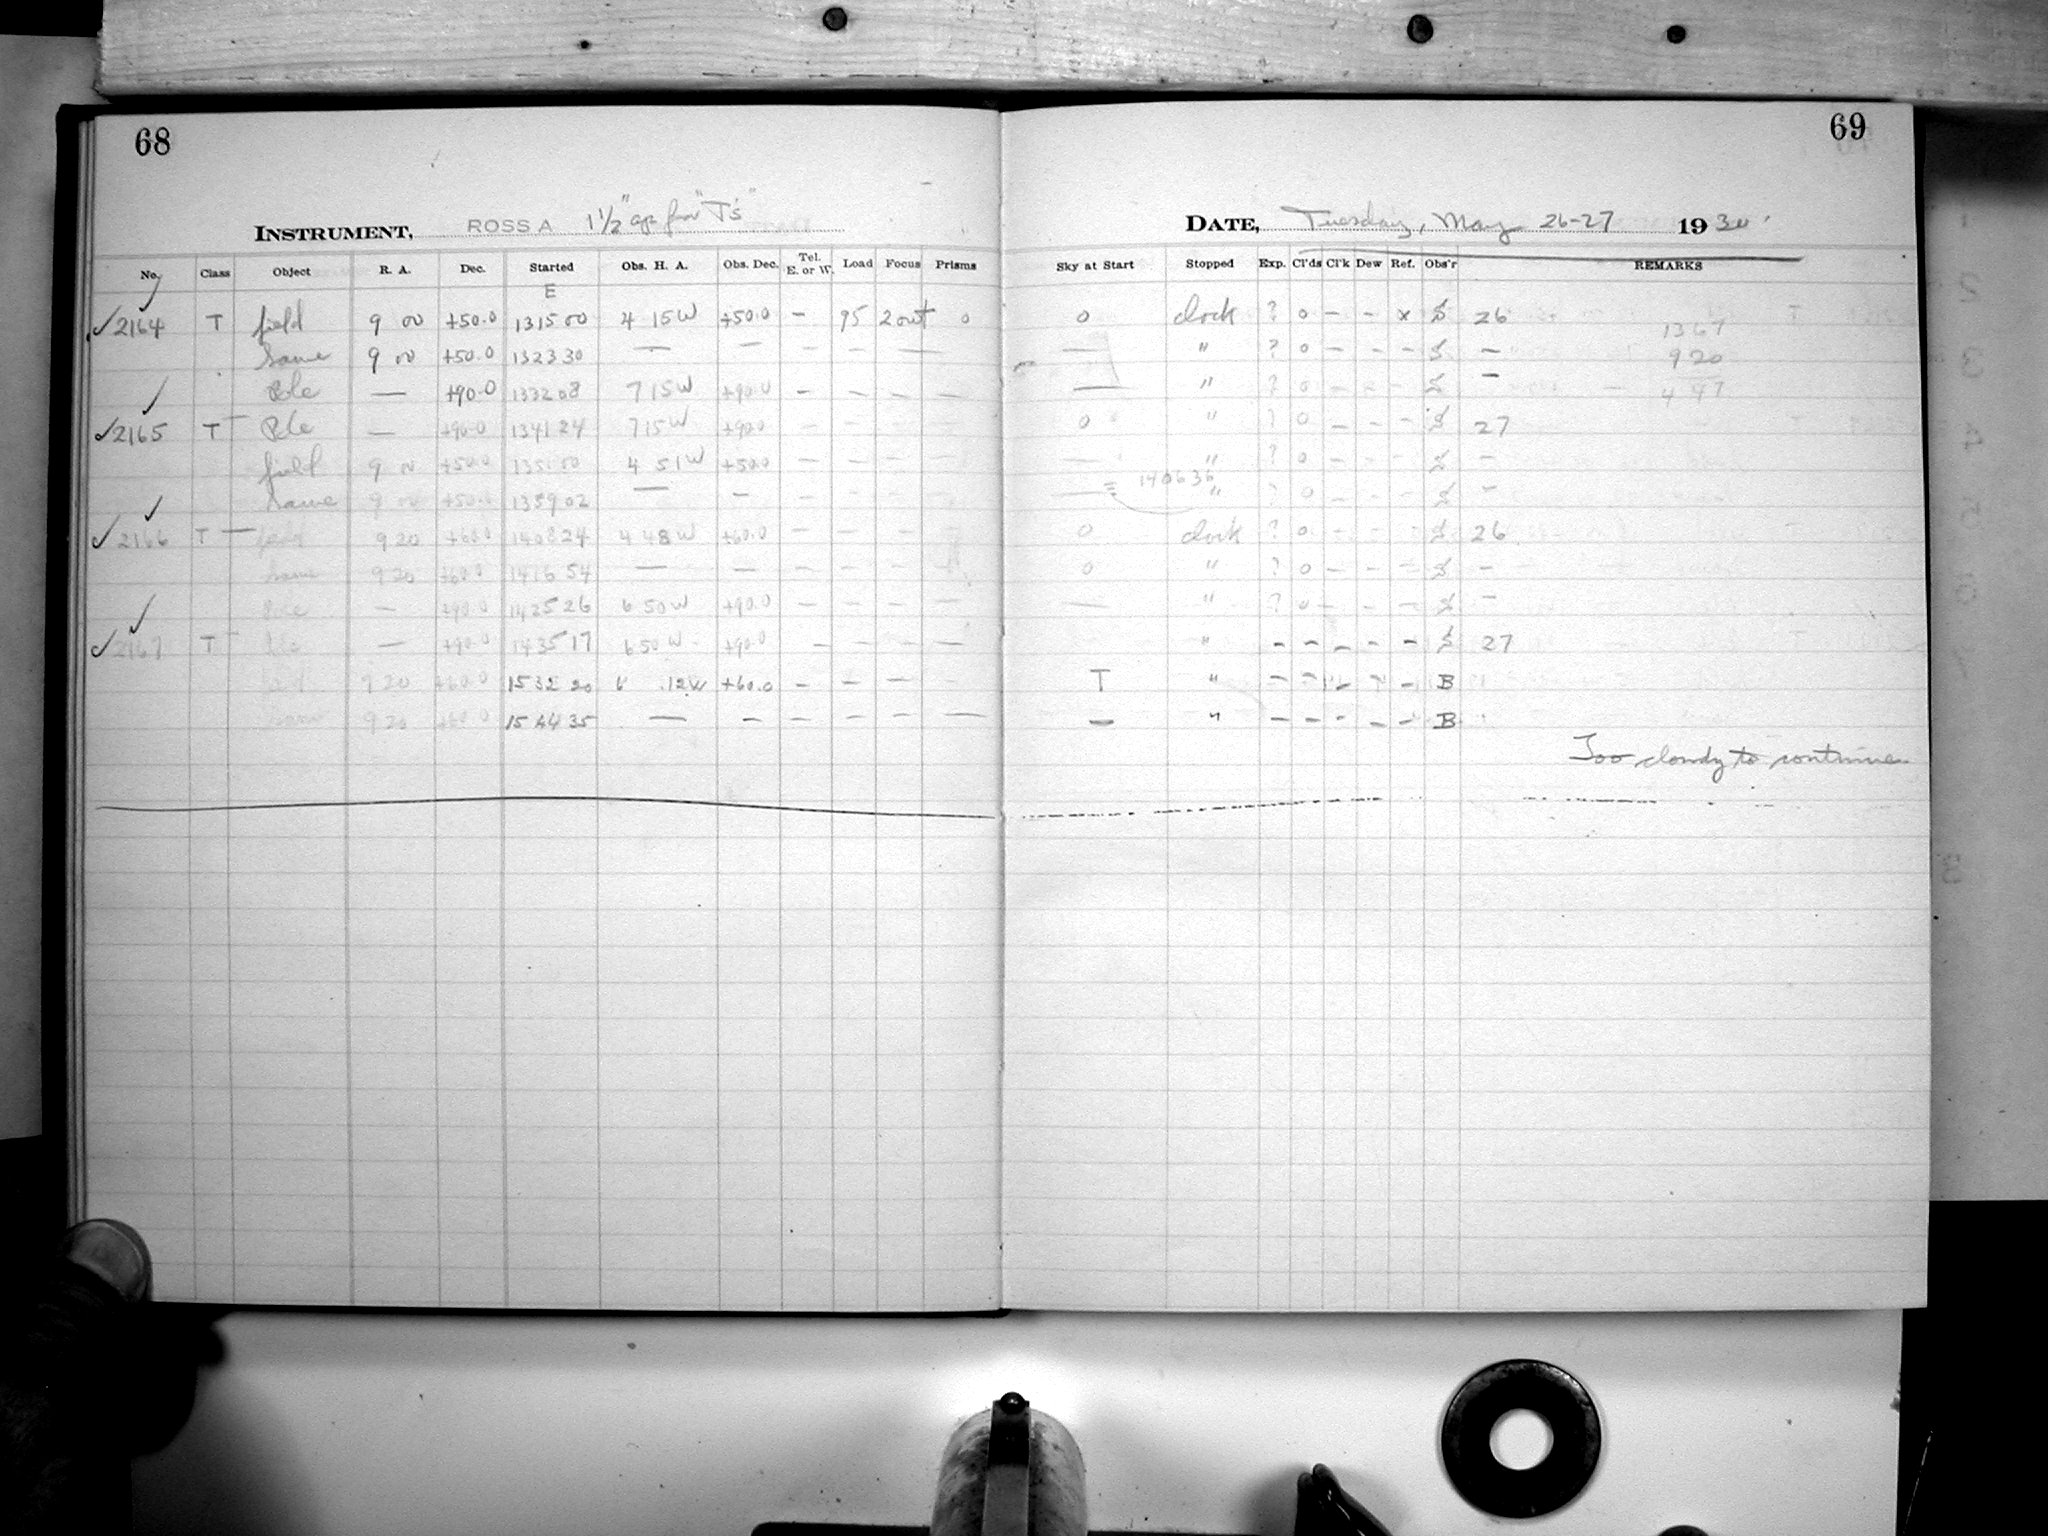 68
INSTRUMENT, ROSS A 1 1/2" ap. for "T's"
No. Class Object R. A. Dec. Started Obs. H. A. Obs. Dec. Tel. E. or W. Load Focus Prisms
E
✓2164 T field 9 00 +50.0 13 15 00 4 15 W +50.0 – 95 2 out 0
Same 9 00 +50.0 13 23 30 — — – – – —
Pole — +90.0 13 32 08 7 15 W +90.0 – – – –
✓2165 T Pole — +90.0 13 41 24 7 15 W +90.0 – – – –
field 9 00 +50.0 13 51 00 4 51 W +50.0 – – – –
Same 9 00 +50.0 13 59 02 — – – – – –
✓2166 T field 9 20 +60.0 14 08 24 4 48 W +60.0 – – –
Same 9 20 +60.0 14 16 54 — – – – –
Pole — +90.0 14 25 26 6 50 W +90.0 – – – –
✓2167 T — +90.0 14 35 17 6 50 W +90.0 – – – –
9 20 +60.0 15 32 20 6 12 W +60.0 – – – –
Same 9 20 +60.0 15 44 35 — – – – – —
69
DATE, Tuesday, May 26-27 1930
Sky at Start Stopped Exp. Cl'ds Cl'k Dew Ref. Obs'r REMARKS
0 clock ? 0 – – x 26 1367
— " ? 0 – – – – 920
— " ? 0 – – – – 497
0 " ? 0 – – – 27
— " ? 0 – – – –
— 140636 " ? 0 – – – –
0 clock ? 0 – – – 26
0 " ? 0 – – – –
— " ? 0 – – – –
" – – – – – 27
T " – – – – – B "
– " – – – – – B "
Too cloudy to continue